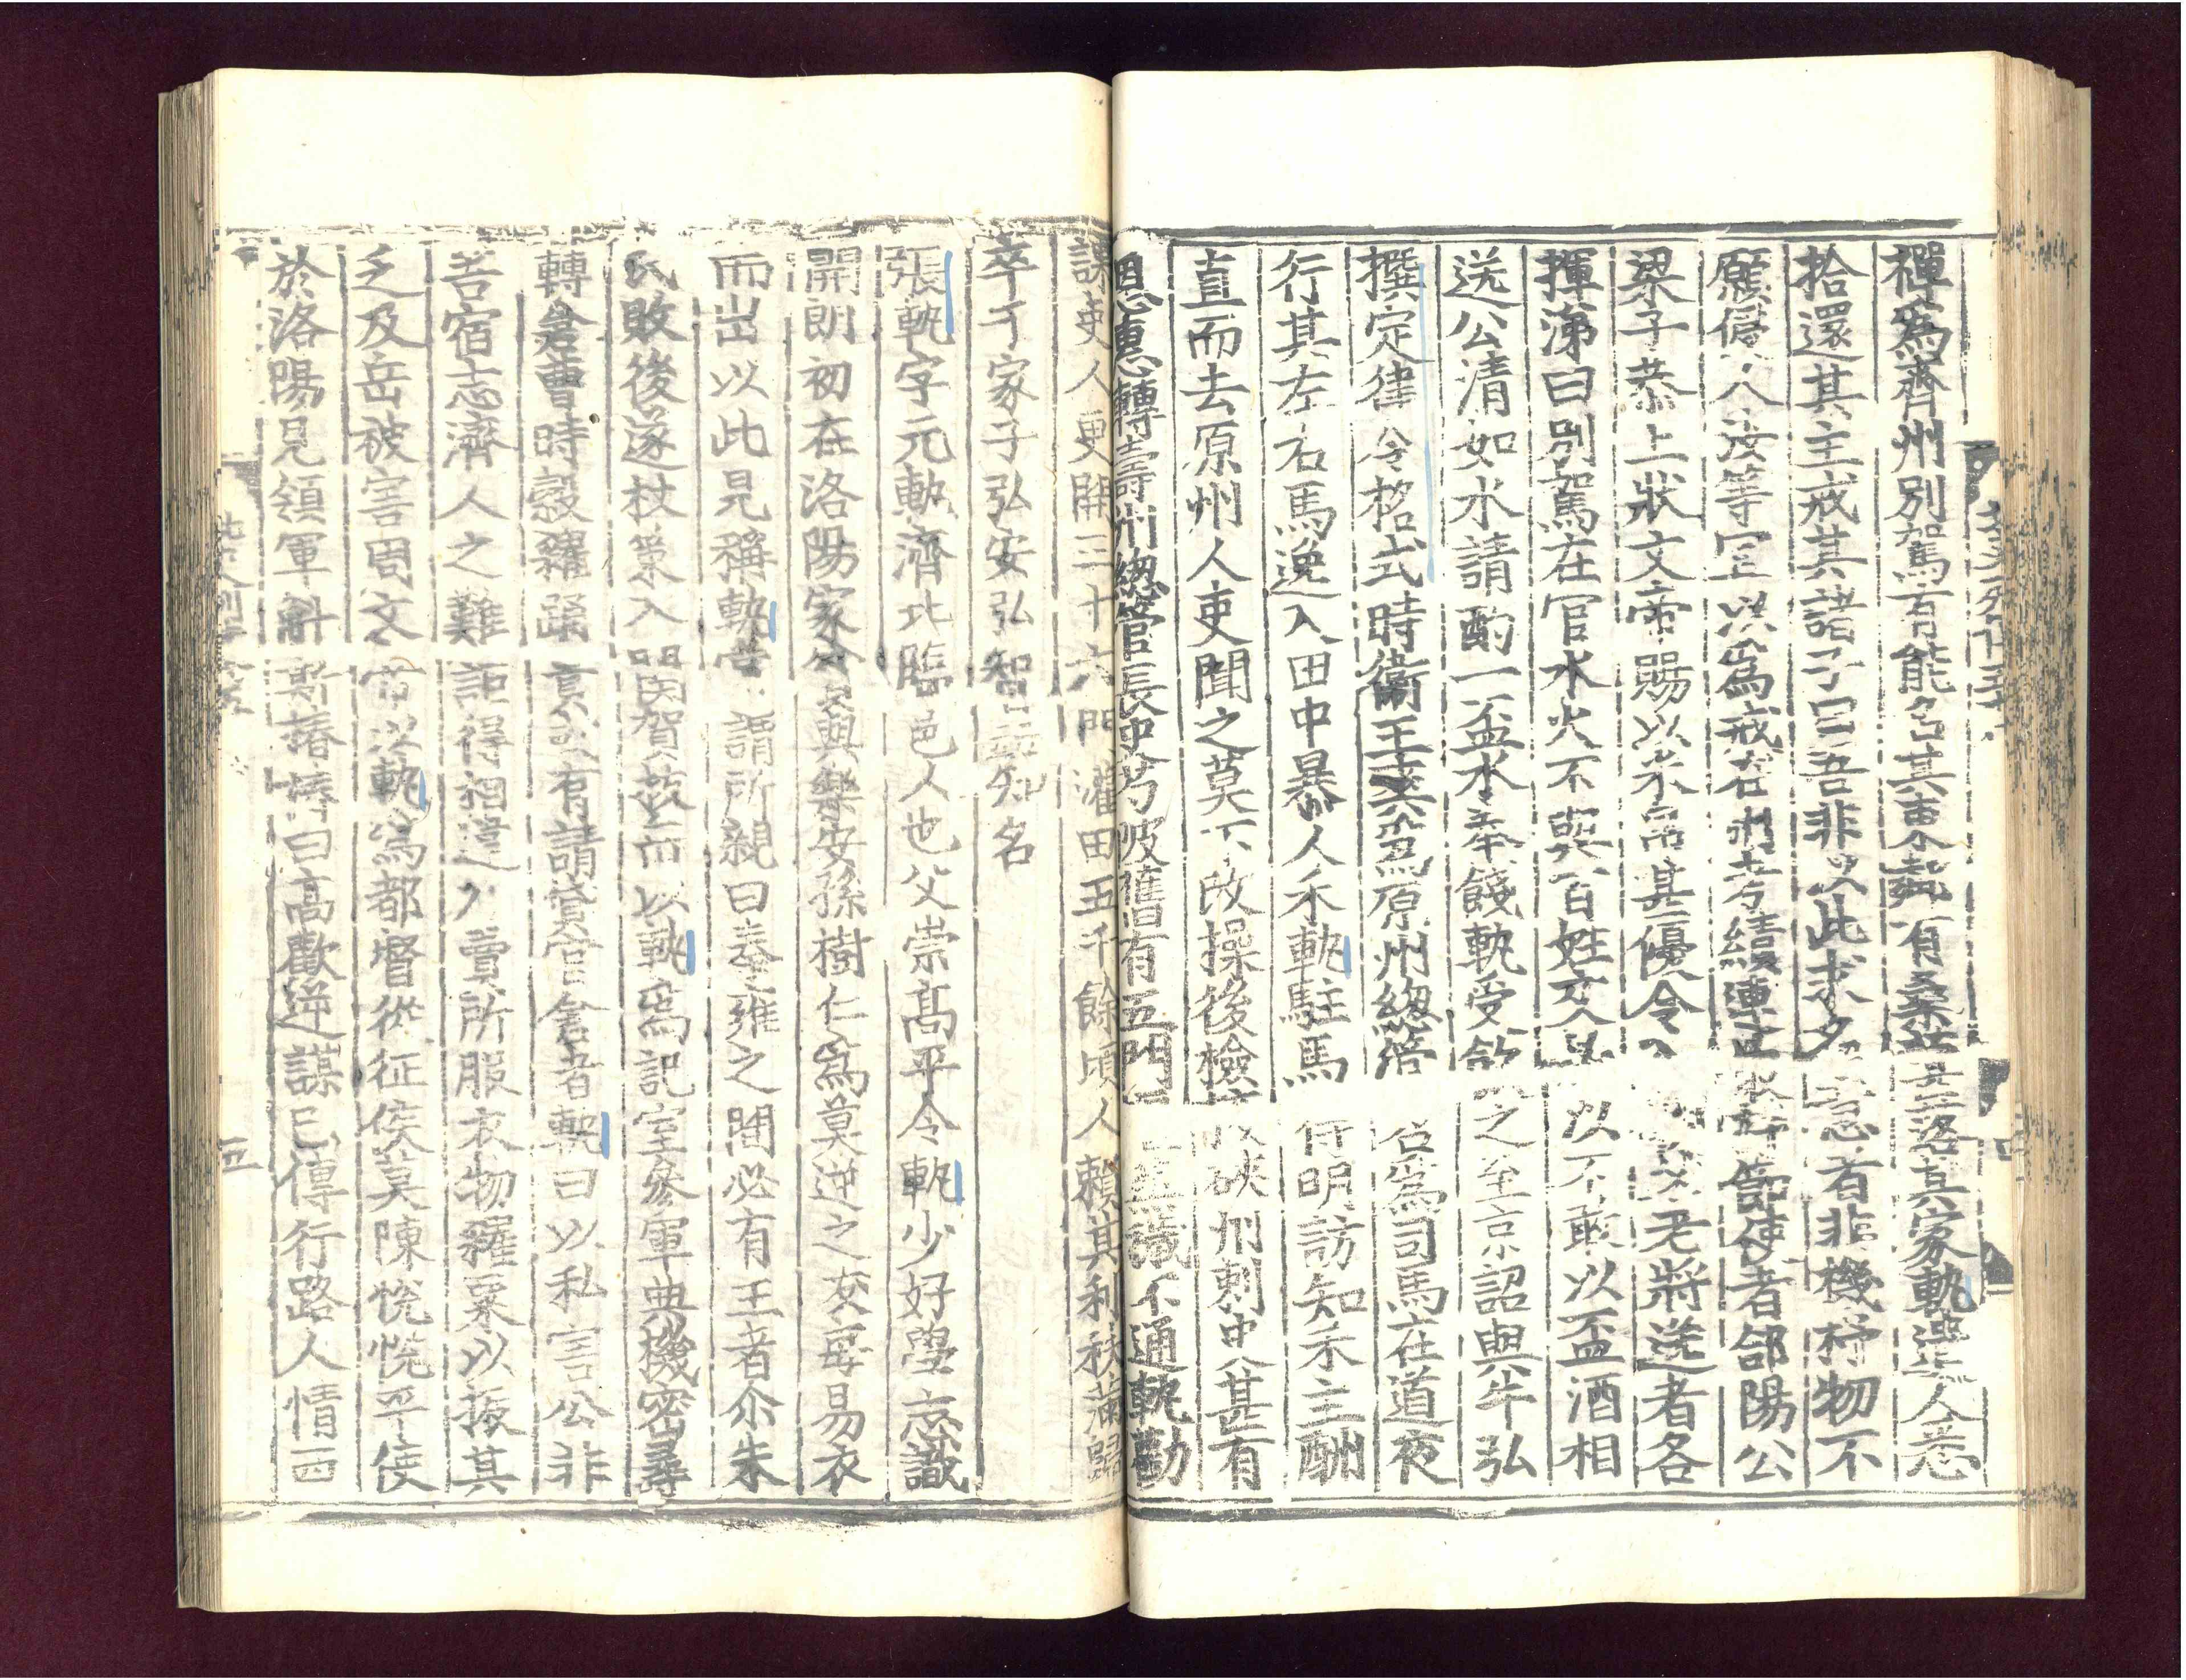 禪爲齊州別駕有能名其東鄰有桑葚落其家軌遣人悉
拾還其主戒其諸子曰吾非以此求名意者非機杼物不
願侵人汝等宜以爲戒在州考績連最 使者郃陽公
梁子恭上狀文帝賜以米帛甚優令入 父老將送者各
揮涕曰別駕在官水火不與百姓交 以不敢以盃酒相
送公清如水請酌一盃水奉餞軌受飲之至京詔與牛弘
撰定律令格式時衞王爽爲原州總管召爲司馬在道夜
行其左右馬逸入田中暴人禾軌駐馬待明訪知禾主酬
直而去原州人吏聞之莫不改操後檢校硤州刺史甚有
恩惠轉壽州總管長史芍陂舊有五門 蕪穢不通軌勸
課吏人更開三十六門灌田五千餘頃人賴其利秩滿歸
卒于家子弘安弘智 知名
張軌字元軌濟北臨邑人也父崇高平令軌少好學志識
開朗初在洛陽家 與樂安孫樹仁爲莫逆之友每易衣
而出以此見稱軌 謂所親曰秦雍之閒必有王者尒朱
氏敗後遂杖策入關賀 而以軌爲記室參軍典機密尋
轉倉曹時穀糴踊貴 有請貸官倉者軌曰以私害公非
吾宿志濟人之難詎得相違乃賣所服衣物糴粟以振其
乏及岳被害周文帝以軌爲都督從征侯莫陳悅悅平使
於洛陽見領軍斛斯椿椿曰高歡逆謀已傳行路人情西
五